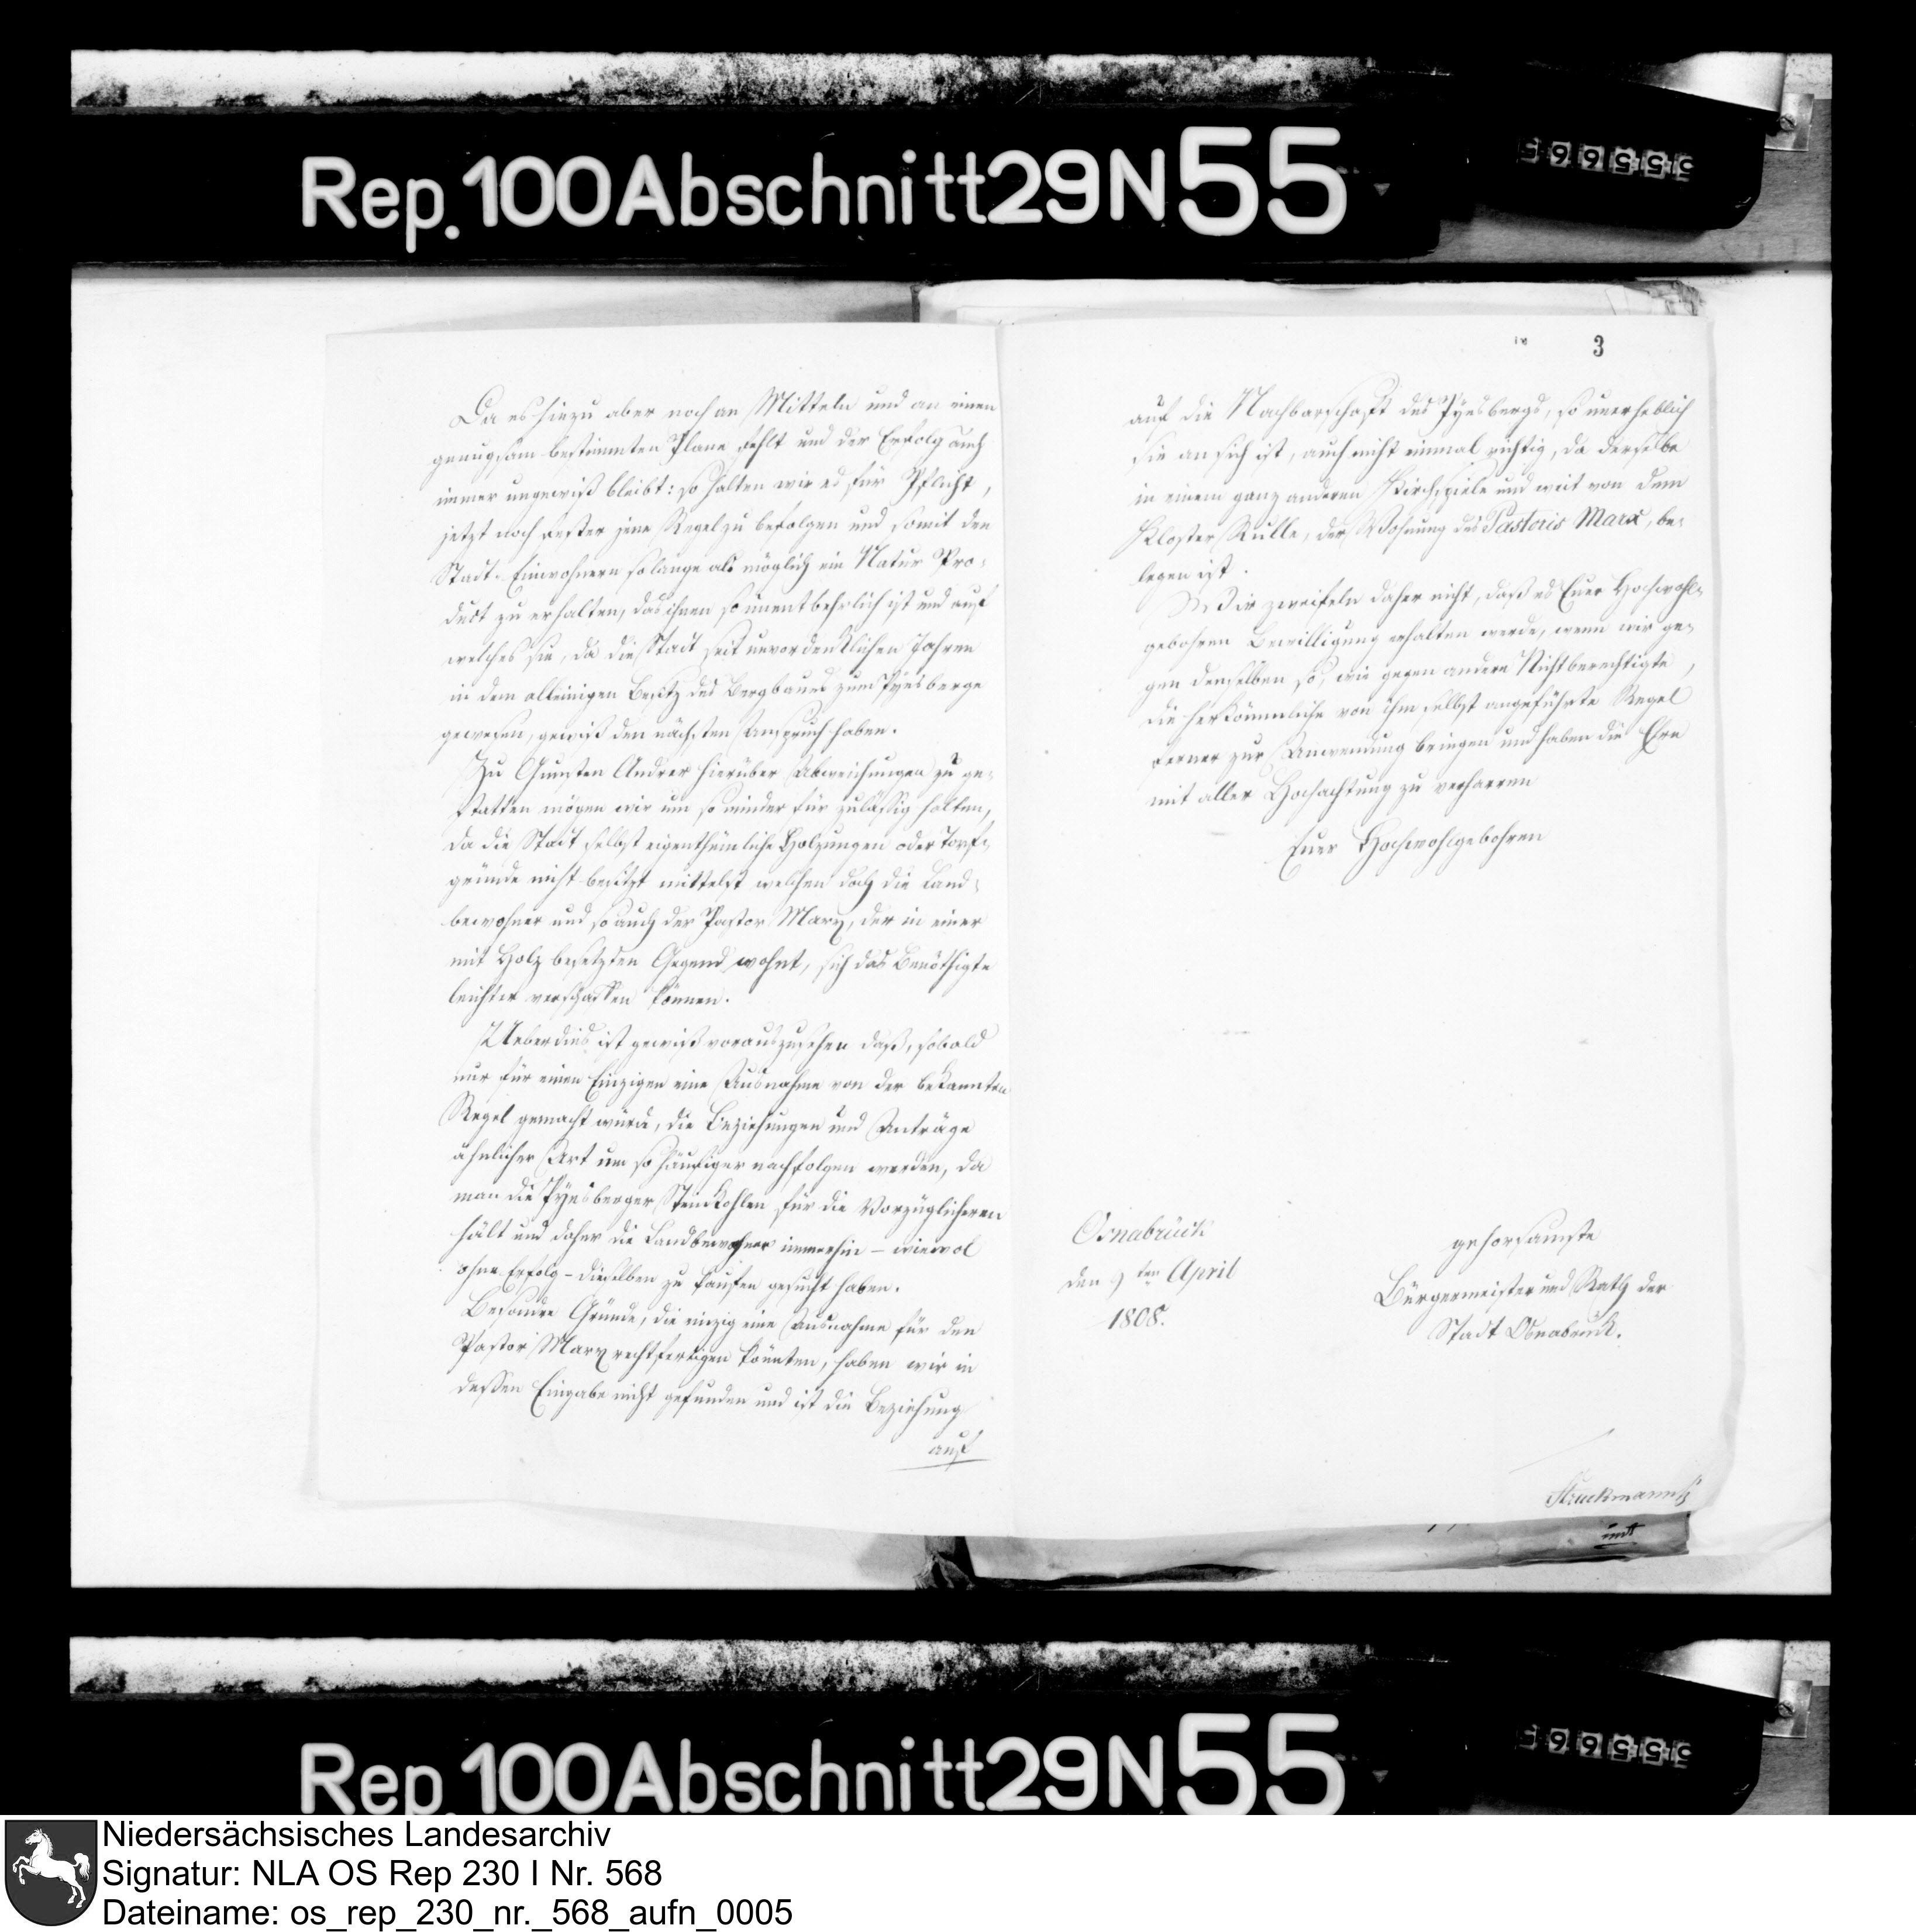 Rep. 100 Abschnitt 29 N 55
3
Da es hiezu aber noch an Mitteln und an einen
genugsam bestimmten Plane fehlt und der Erfolg auch
immer ungewiß bleibt: so halten wir es für Pflicht,
jetzt noch fester jene Regel zu befolgen und somit den
Stadt-Einwohnern solange als möglich ein Natur Pro-
duct zu erhalten, das ihnen so unentbehrlich ist und auf
welches sie, da die Stadt seit unvordenklichen Jahren
in dem alleinigen Besitz des Bergbaues zum Pyesberge
gewesen, gewiß den nächsten Anspruch haben.
Zu Gunsten Andrer hierüber Abweichungen zu ge-
statten mögen wir um so minder für zuläßig halten,
da die Stadt selbst eigenthümliche Holzungen oder Torf-
gründe nicht besitzt mittelst welchen doch die Land-
bewohner und so auch der Pastor Marx, der in einer
mit Holz besetzten Gegend wohnt, sich das Benöthigte
leichter verschaffen können.
Ueberdies ist gewiß vorauszusehen daß, sobald
nur für einen Einzigen eine Ausnahme von der bekannten
Regel gemacht würde, die Beziehungen und Anträge
ähnlicher Art um so häufiger nachfolgen werden, da
man die Pyesberger Steinkohlen für die Vorzüglicheren
hält und daher die Landbewohner immerhin – wiewol
ohne Erfolg – dieselben zu kaufen gesucht haben.
Besondre Gründe, die einzig eine Ausnahme für den
Pastor Marx rechtfertigen könnten, haben wir in
dessen Eingabe nicht gefunden und ist die Beziehung
auf
auf die Nachbarschaft des Pyesbergs, so unerheblich
sie an sich ist, auch nicht einmal richtig, da derselbe
in einem ganz anderen Kirchspiele und weit von dem
Kloster Rulle, der Wohnung des Pastoris Marx, be-
legen ist.
Wir zweifeln daher nicht, daß es Euer Hochwohl-
gebohren Bewilligung erhalten werde, wenn wir ge-
gen denselben so, wie gegen andere Nichtberechtigte,
die herkömmliche von ihm selbst angeführte Regel
ferner zur Anwendung bringen und haben die Ehre
mit aller Hochachtung zu verharren
Euer Hochwohlgebohren
Osnabrück
den 9ten April
1808.
gehorsamste
Bürgermeister und Rath der
Stadt Osnabrück.
Struckmann
Rep. 100 Abschnitt 29 N 55
Niedersächsisches Landesarchiv
Signatur: NLA OS Rep 230 I Nr. 568
Dateiname: os_rep_230_nr._568_aufn_0005